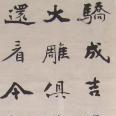 驕成吉
火雕俱
還看今